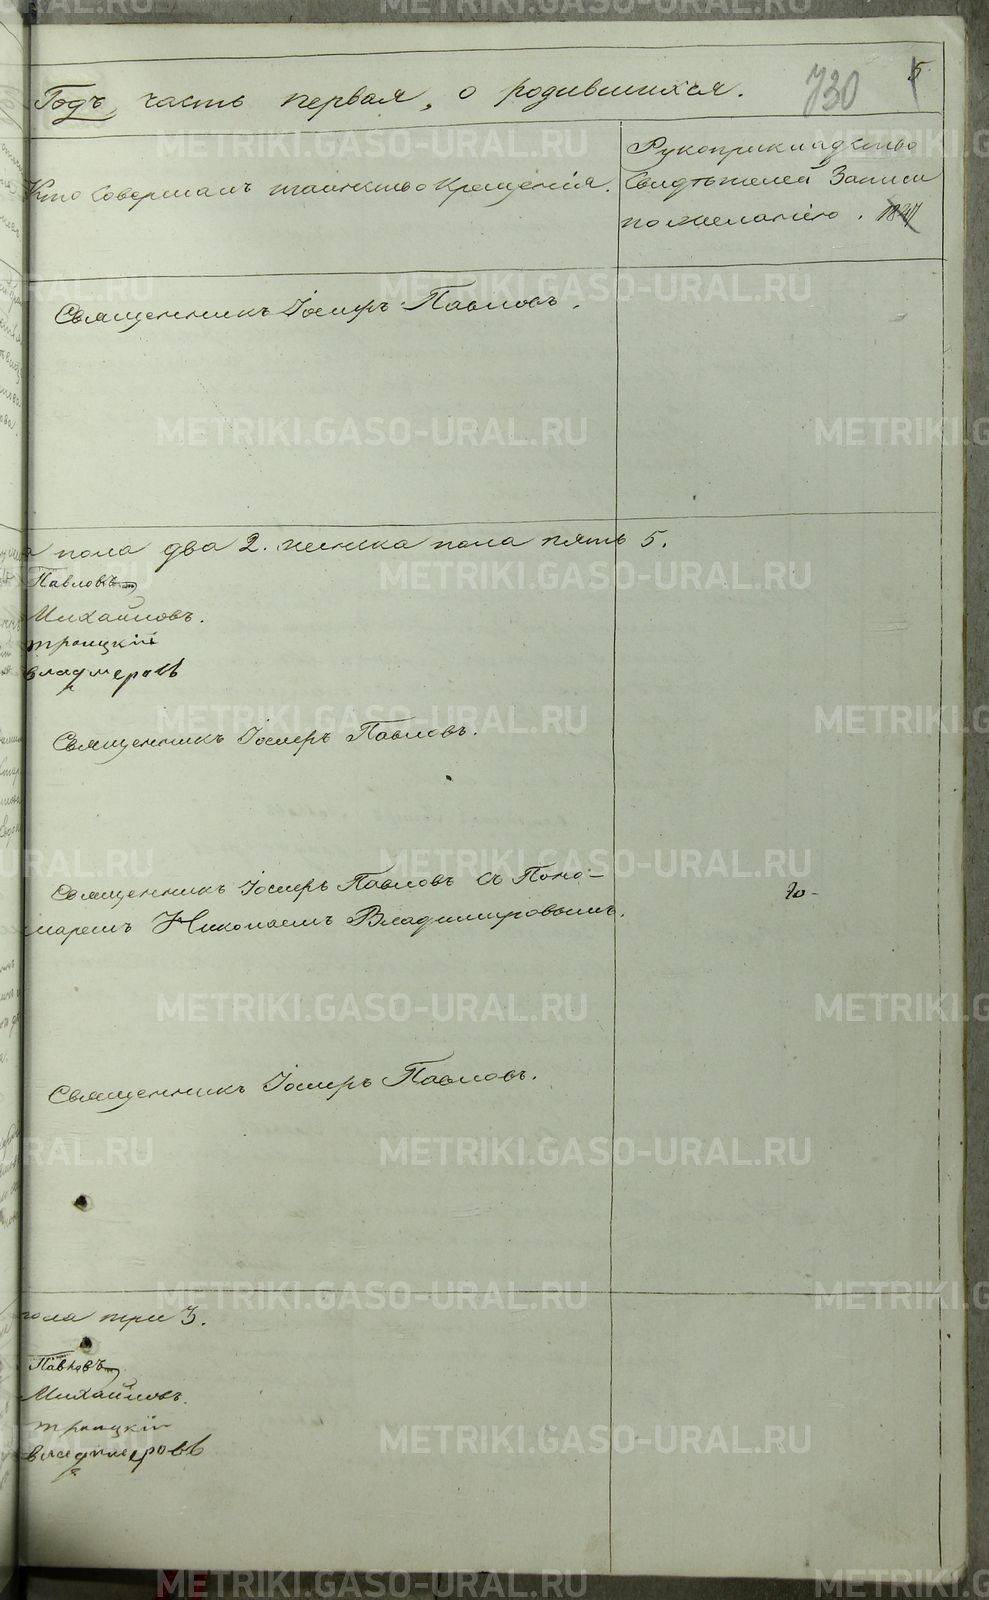 Годъ, часть первая, о родившихся.
730
5
Кто совершалъ таинство Крещенія.
Рукоприкладство
Свидѣтелей Записи
по желанію.
Священникъ Іосифъ Павловъ.
пола два 2. женска пола пять 5.
Павловъ
Михайловъ.
Троицкій
Владмеровъ
Священникъ Іосифъ Павловъ.
Священникъ Іосифъ Павловъ съ Поно-
маремъ Николаемъ Владимировымъ.
Священникъ Іосифъ Павловъ.
пола три 3.
Павловъ
Михайловъ.
Троицкій
Владимеровъ
METRIKI.GASO-URAL.RU